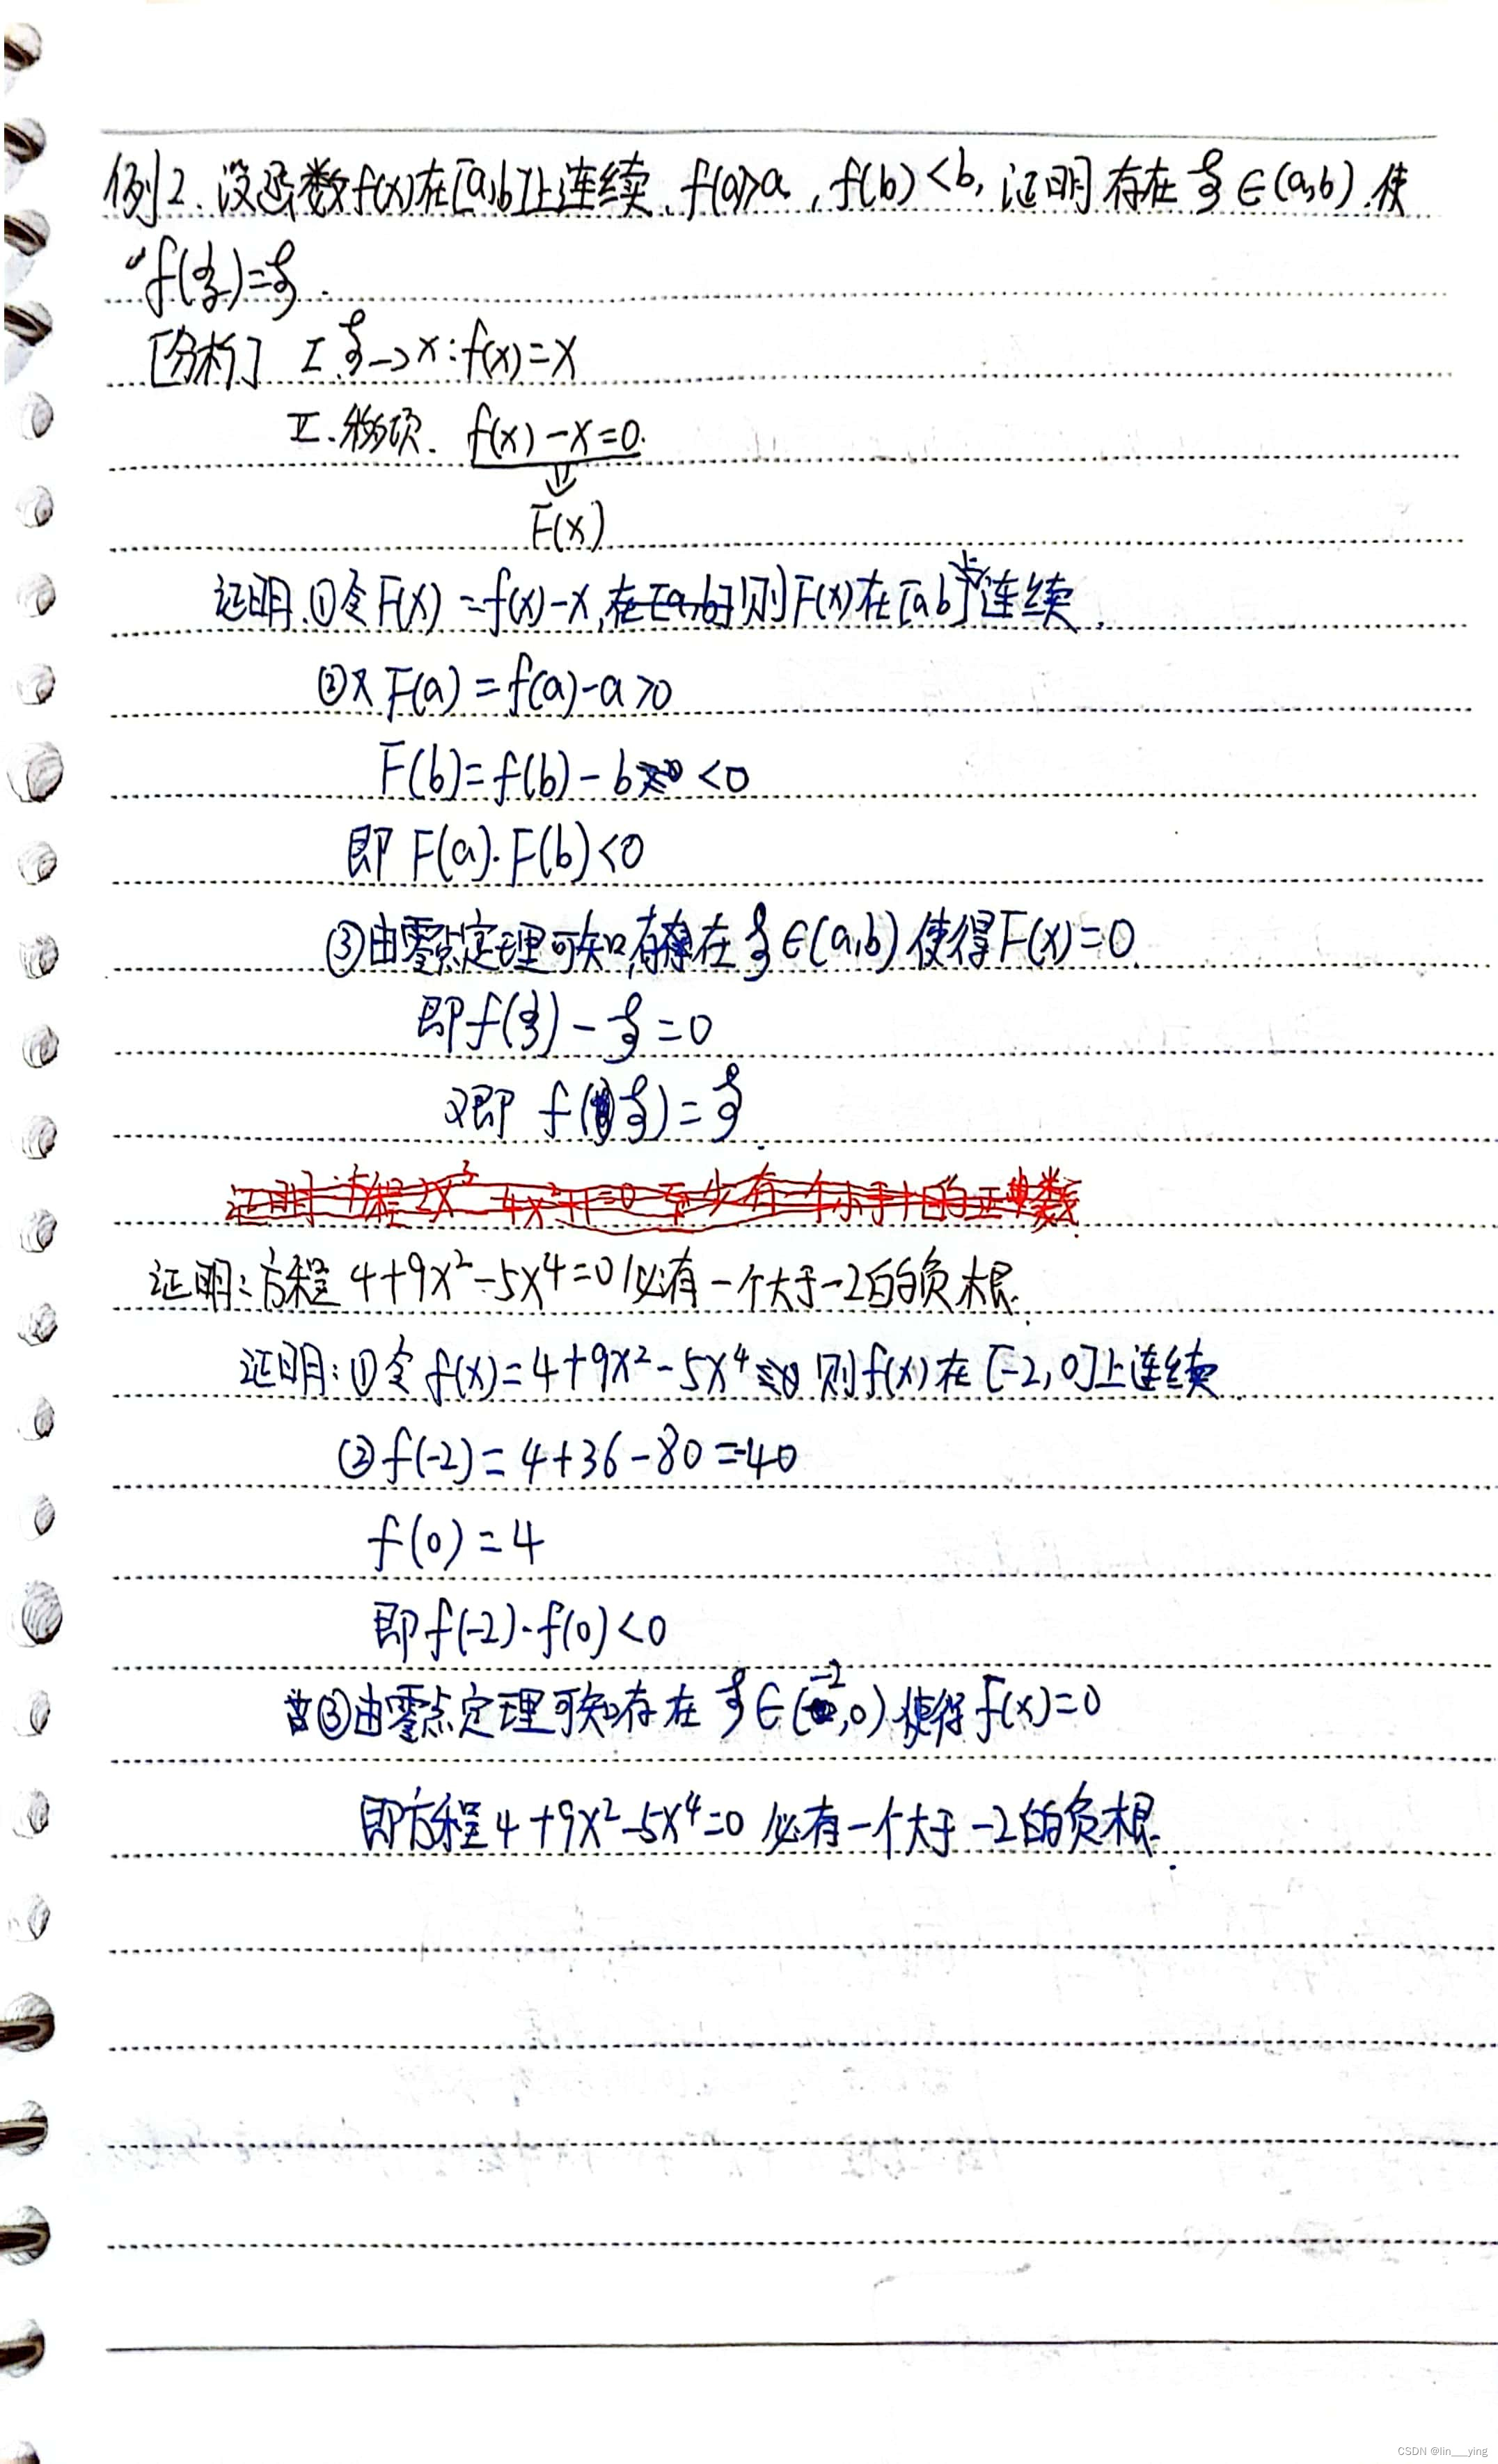 例2.设函数f(x)在[a,b]上连续,f(a)>a,f(b)<b,证明存在ξ∈(a,b).使
f(ξ)=ξ.
[分析] I.ξ->x:f(x)=x
II.移项. f(x)-x=0.
F(x)
证明.①令F(x)=f(x)-x,在[a,b]则F(x)在[a b]上连续.
②又F(a)=f(a)-a>0
F(b)=f(b)-b <0
即 F(a)·F(b)<0
③由零点定理可知,存在ξ∈(a,b)使得F(x)=0.
即f(ξ)-ξ=0
又即 f(ξ)=ξ.
证明:方程2x³-4x²+1=0至少有一个小于1的正 数
证明:方程 4+9x²-5x⁴=0必有一个大于-2的负根.
证明:①令f(x)=4+9x²-5x⁴ 则f(x)在[-2,0]上连续.
②f(-2)=4+36-80=-40
f(0)=4
即f(-2)·f(0)<0
③由零点定理可知存在ξ∈(-2,0)使得f(x)=0
即方程4+9x²-5x⁴=0必有一个大于-2的负根.
CSDN @lin___ying